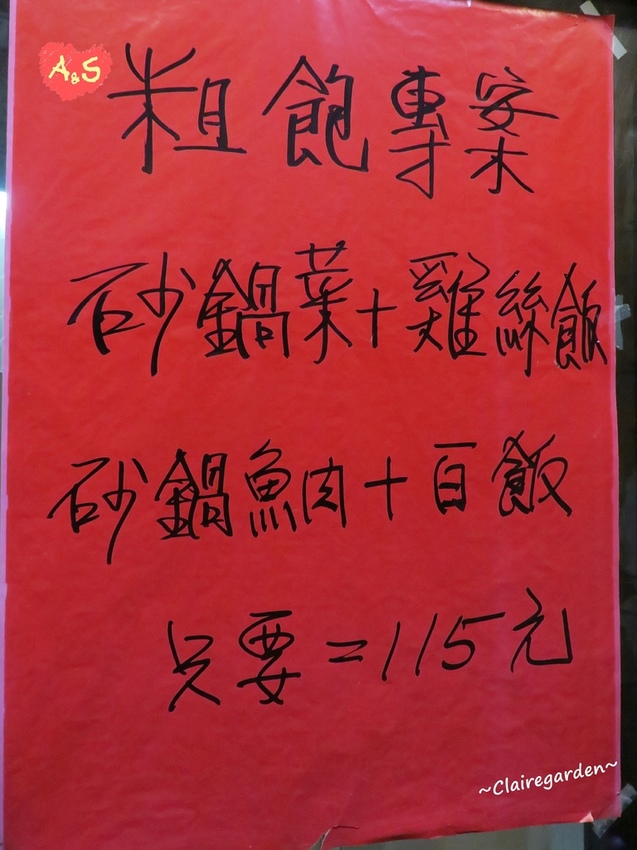 A&S
粗飽專案
砂鍋菜+雞絲飯
砂鍋魚肉+百飯
只要=115元
~Clairegarden~